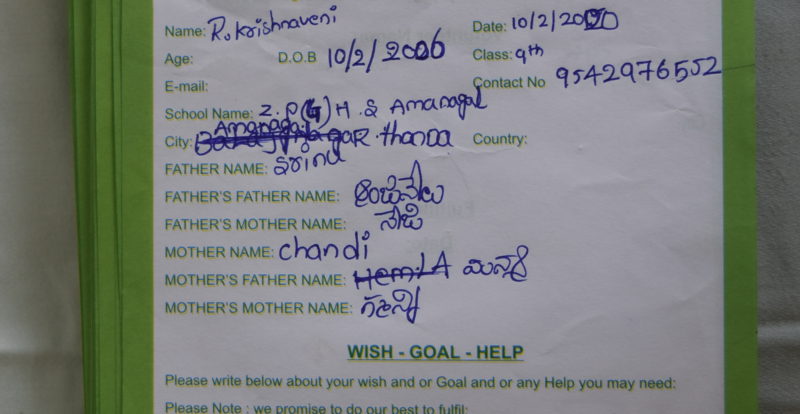 Name: R. Krishnaveni Date: 10/2/2020
Age: D.O.B 10/2/2006 Class: 9th
E-mail: Contact No 9542976552
School Name: Z.P(G)H.S Amanagal
Amanagal
City: thanda Country:
FATHER NAME: Srinu
FATHER'S FATHER NAME:
FATHER'S MOTHER NAME:
MOTHER NAME: chandi
MOTHER'S FATHER NAME:
MOTHER'S MOTHER NAME:
WISH - GOAL - HELP
Please write below about your wish and or Goal and or any Help you may need:
Please Note : we promise to do our best to fulfil: